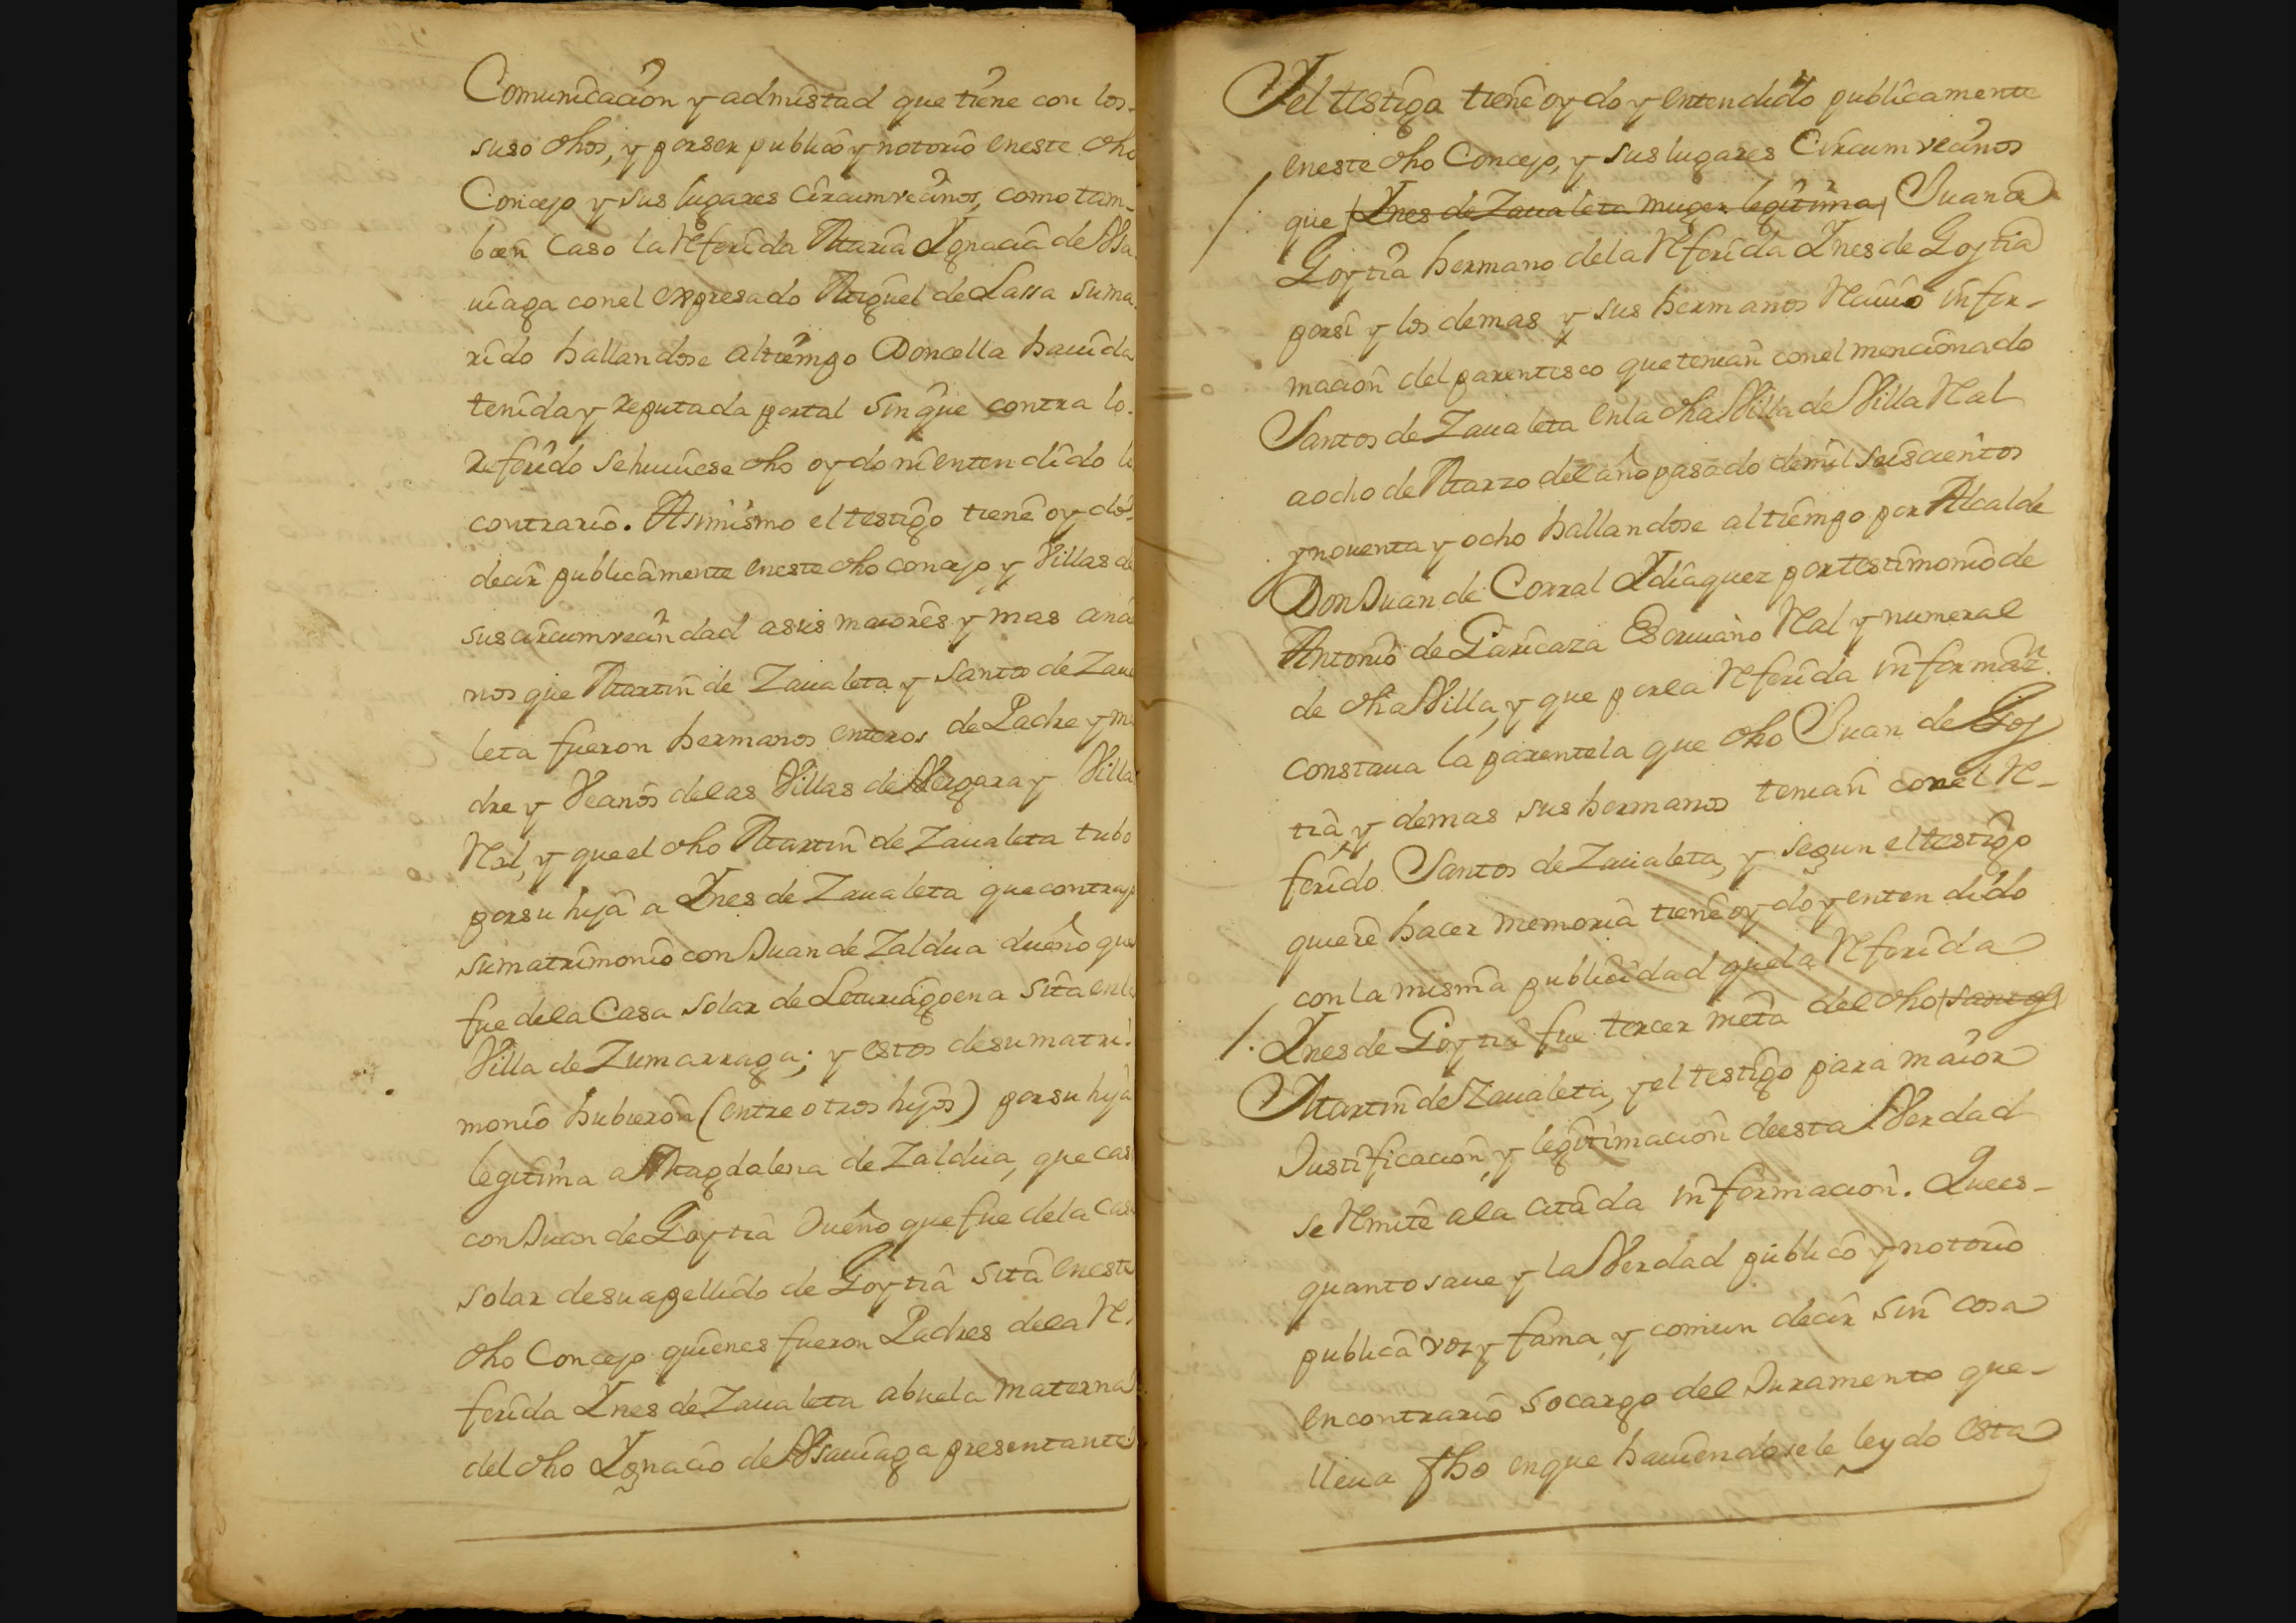 Comunicacion y admistad que tiene con los
suso dhos, y por ser publico y notorio en este dho
Concejo y sus lugares circumvecinos, como tam-
bien Caso la Referida Maria Ignacia de Vsa
uiaga con el expresado Miguel de Lassa su ma
rido hallandose al tiempo Doncella hauida
tenida y reputada por tal sin que contra lo
Referido se huuiese dho oydo ni entendido lo
contrario. Asimismo el testigo tiene oydo
decir publicamente en este dho concejo y Villas de
sus circumvecindad a sus maiores y mas ancia
nos que Martin de Zaualeta y Santos de Zaua
leta fueron hermanos enteros de Padre y ma
dre y Vecinos de las Villas de Vergara y Villa
Rl, y que el dho Martin de Zaualeta tubo
por su hija a Ines de Zaualeta que contrajo
su matrimonio con Juan de Zaldua dueño que
fue de la Casa solar de Leturiagoena sita en la
Villa de Zumarraga; y estos de su matri-
monio hubieron (entre otros hijos) por su hija
legitima a Magdalena de Zaldua, que caso
con Juan de Goytia Dueño que fue de la Casa
solar de su apellido de Goytia sita en este
dho Concejo quienes fueron Padres de la Re
ferida Ines de Zaualeta abuela materna
del dho Ignacio de Vsauiaga presentante
Y el testigo tiene oydo y entendido publicamente
en este dho Concejo, y sus lugares Circumvecinos
que Ines de Zaualeta muger legitima Juan de
Goytia hermano de la Referida Ines de Goytia
por si y los demas y sus hermanos Reciuio infor-
macion del parentesco que tenian con el mencionado
Santos de Zaualeta en la dha Villa de Villa Real
a ocho de Marzo del año pasado de mil seiscientos
y nouenta y ocho hallandose al tiempo por Alcalde
Don Juan de Corral Idiaquez por testimonio de
Antonio de Garicaza Escriuano Real y numeral
de dha Villa, y que por la Referida informazn
constaua la parentela que dho Juan de Goy
tia y demas sus hermanos tenian con el Re-
ferido Santos de Zaualeta, y segun el testigo
quiere hacer memoria tiene oydo y entendido
con la misma publicidad que la Referida
Ines de Goytia fue tercer nieta del dho
Martin de Zaualeta, y el testigo para maior
Justificacion y legitimacion de esta Verdad
se Remite a la citada informacion. Que es
quanto saue y la Verdad publico y notorio
publica voz y fama, y comun decir sin cosa
en contrario so cargo del Juramento que
lleua fho en que hauiendosele leydo esta